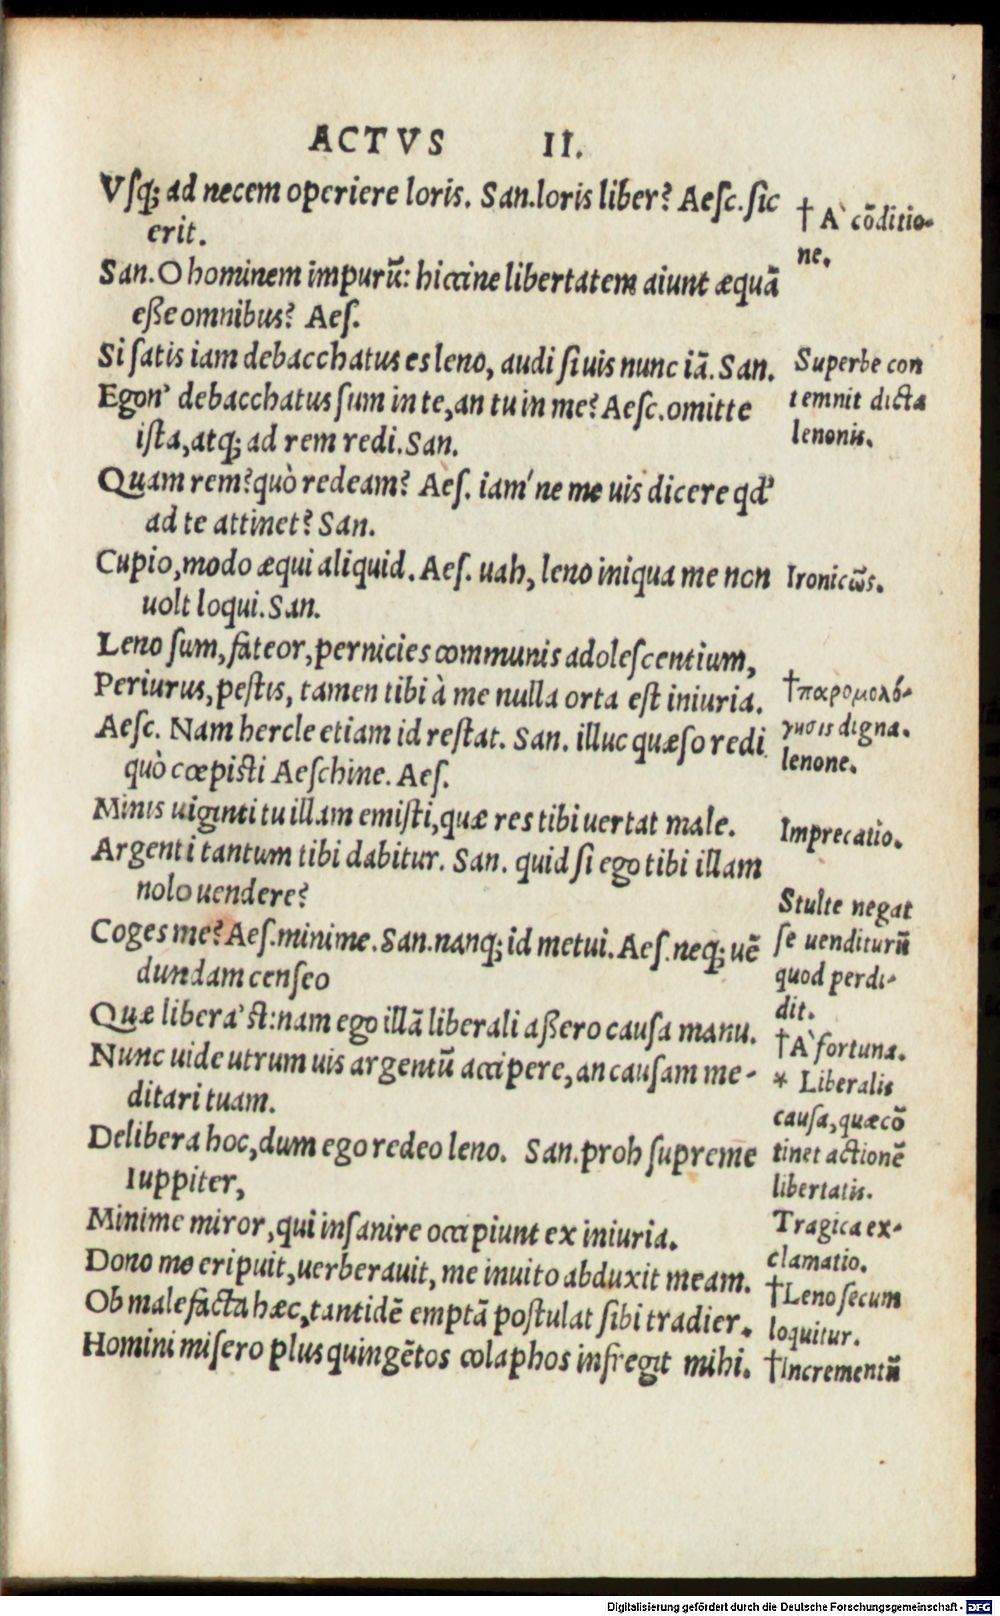 ACTVS II.
Vſq; ad necem operiere loris. San. loris liber? Aeſc. ſic
erit.
San. O hominem impurū: hiccine libertatem aiunt æquā
eße omnibus? Aeſ.
Si ſatis iam debacchatus es leno, audi ſi uis nunc iā. San.
Egon' debacchatus ſum in te, an tu in me? Aeſc. omitte
iſta, atq; ad rem redi. San.
Quam rem? quò redeam? Aeſ. iam'ne me uis dicere qd'
ad te attinet? San.
Cupio, modo æqui aliquid. Aeſ. uah, leno iniqua me non
uolt loqui. San.
Leno ſum, fateor, pernicies communis adoleſcentium,
Periurus, peſtis, tamen tibi à me nulla orta eſt iniuria.
Aeſc. Nam hercle etiam id reſtat. San. illuc quæſo redi
quò cœpiſti Aeſchine. Aeſ.
Minis uiginti tu illam emiſti, quæ res tibi uertat male.
Argenti tantum tibi dabitur. San. quid ſi ego tibi illam
nolo uendere?
Coges me? Aeſ. minime. San. nanq; id metui. Aeſ. neq; uē
dundam cenſeo
Quæ libera'ſt: nam ego illā liberali aßero cauſa manu.
Nunc uide utrum uis argentū accipere, an cauſam me-
ditari tuam.
Delibera hoc, dum ego redeo leno. San. proh ſupreme
Iuppiter,
Minime miror, qui inſanire occipiunt ex iniuria.
Domo me eripuit, uerberauit, me inuito abduxit meam.
Ob malefacta hæc, tantidē emptā poſtulat ſibi tradier.
Homini miſero plus quingētos colaphos infregit mihi.
† A' cōditio-
ne.
Superbe con
temnit dicta
lenonis.
Ironicῶs.
†παρομολό-
γησις digna.
lenone.
Imprecatio.
Stulte negat
ſe uenditurū
quod perdi-
dit.
†A' fortuna.
* Liberalis
cauſa, quæ cō
tinet actionē
libertatis.
Tragica ex-
clamatio.
†Leno ſecum
loquitur.
†Incrementū
Digitalisierung gefördert durch die Deutsche Forschungsgemeinschaft - DFG